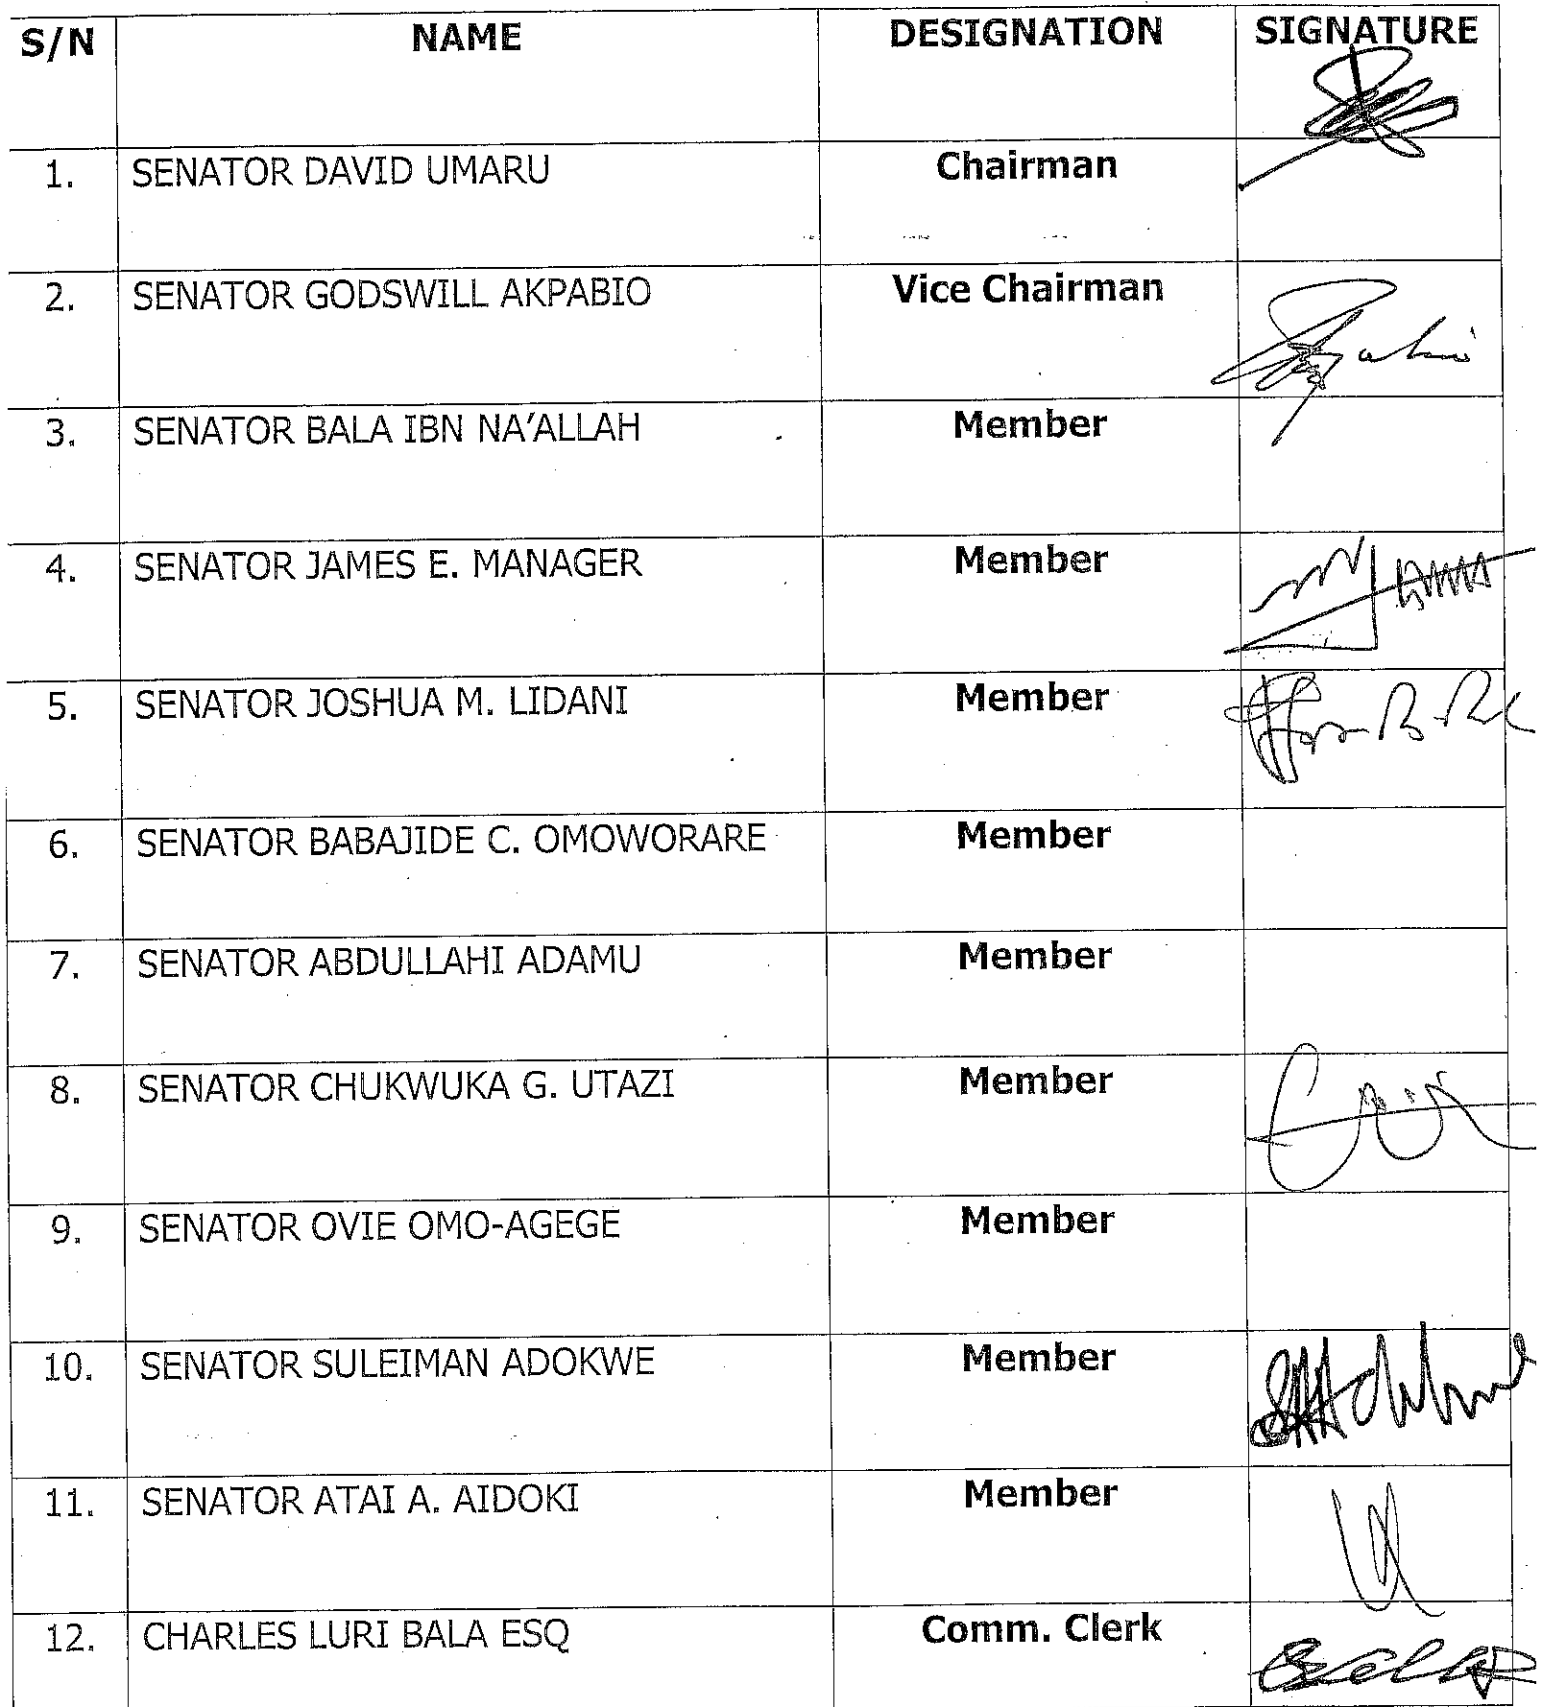 S/N NAME DESIGNATION SIGNATURE
1. SENATOR DAVID UMARU Chairman
2. SENATOR GODSWILL AKPABIO Vice Chairman
3. SENATOR BALA IBN NA'ALLAH Member
4. SENATOR JAMES E. MANAGER Member
5. SENATOR JOSHUA M. LIDANI Member
6. SENATOR BABAJIDE C. OMOWORARE Member
7. SENATOR ABDULLAHI ADAMU Member
8. SENATOR CHUKWUKA G. UTAZI Member
9. SENATOR OVIE OMO-AGEGE Member
10. SENATOR SULEIMAN ADOKWE Member
11. SENATOR ATAI A. AIDOKI Member
12. CHARLES LURI BALA ESQ Comm. Clerk